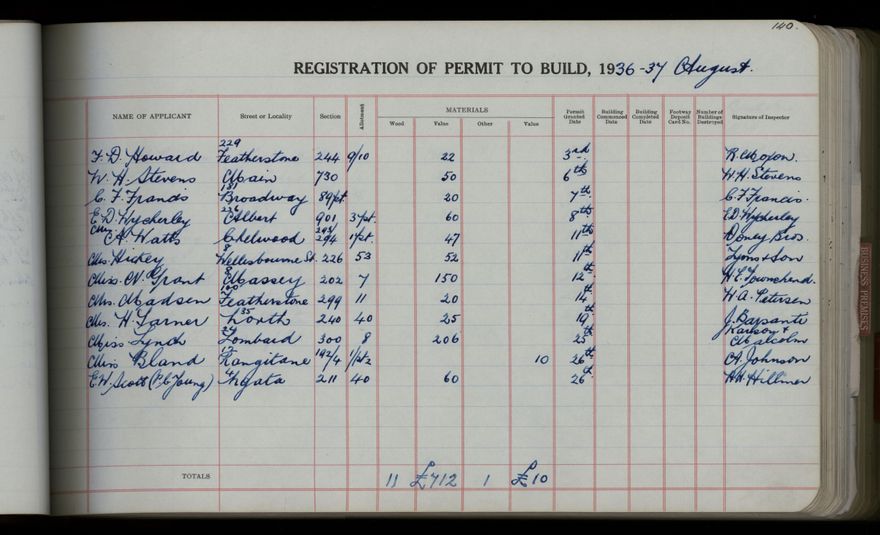 140.
REGISTRATION OF PERMIT TO BUILD, 1936-37 August.
NAME OF APPLICANT Street or Locality Section Allotment MATERIALS Wood Value Other Value Permit Granted Date Building Commenced Date Building Completed Date Footway Deposit Card No. Number of Buildings Destroyed Signature of Inspector
F. D. Howard 229 Featherstone 244 9/10 22 3rd R. Moxon.
W. H. Stevens Main 730 50 6th W. H. Stevens
C. F. Francis 181 Broadway 89pt. 20 7th C. F. Francis.
E. D. Wycherley 226 Albert 901 3pt. 60 8th E. D. Wycherley
A. Watts Chelwood 293/294 1pt. 47 11th Doney Bros.
Mrs. Hickey 8 Wellesbourne St. 226 53 52 11th Lyons & Son
Miss. N. Grant 8 Massey 202 7 150 12th H. E. Townshend.
Mrs. Madsen Featherstone 299 11 20 14th W. A. Petersen
Mrs. H. Larner North 35 240 40 25 19th J. Barsanti
Miss Lynch 24 Lombard 300 8 206 25th Karlson & Malcolm
Miss Bland 12 Rangitane 192/4 10 26th A. Johnson
E. W. Scott (P. C. Young) 4 Ngata 211 40 60 26th A. H. Hillmer
TOTALS 11 £712 1 £10
BUSINESS PREMISES